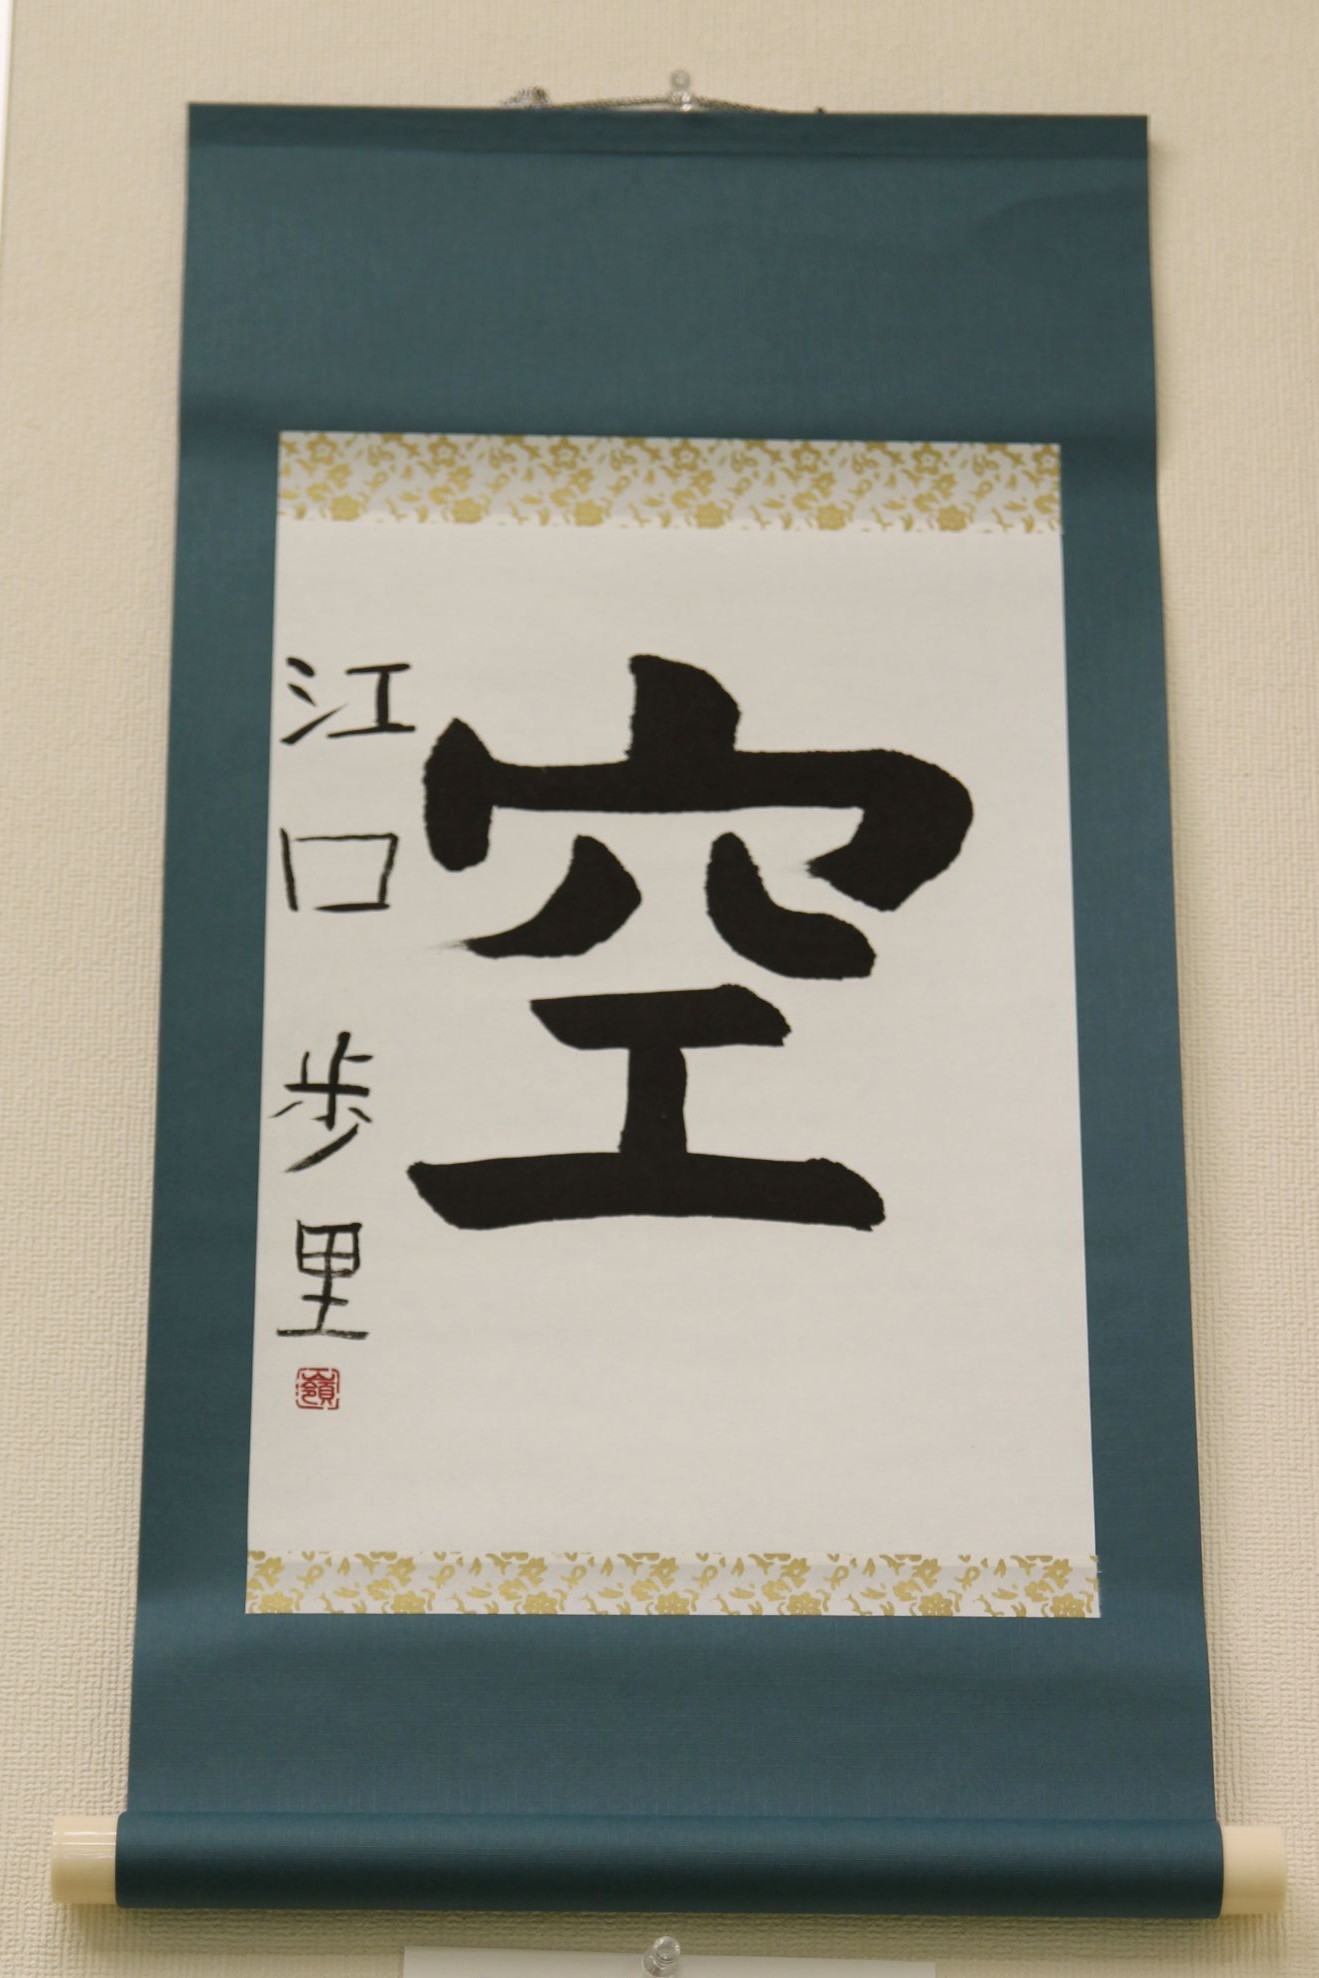 空
江口歩里
嶺